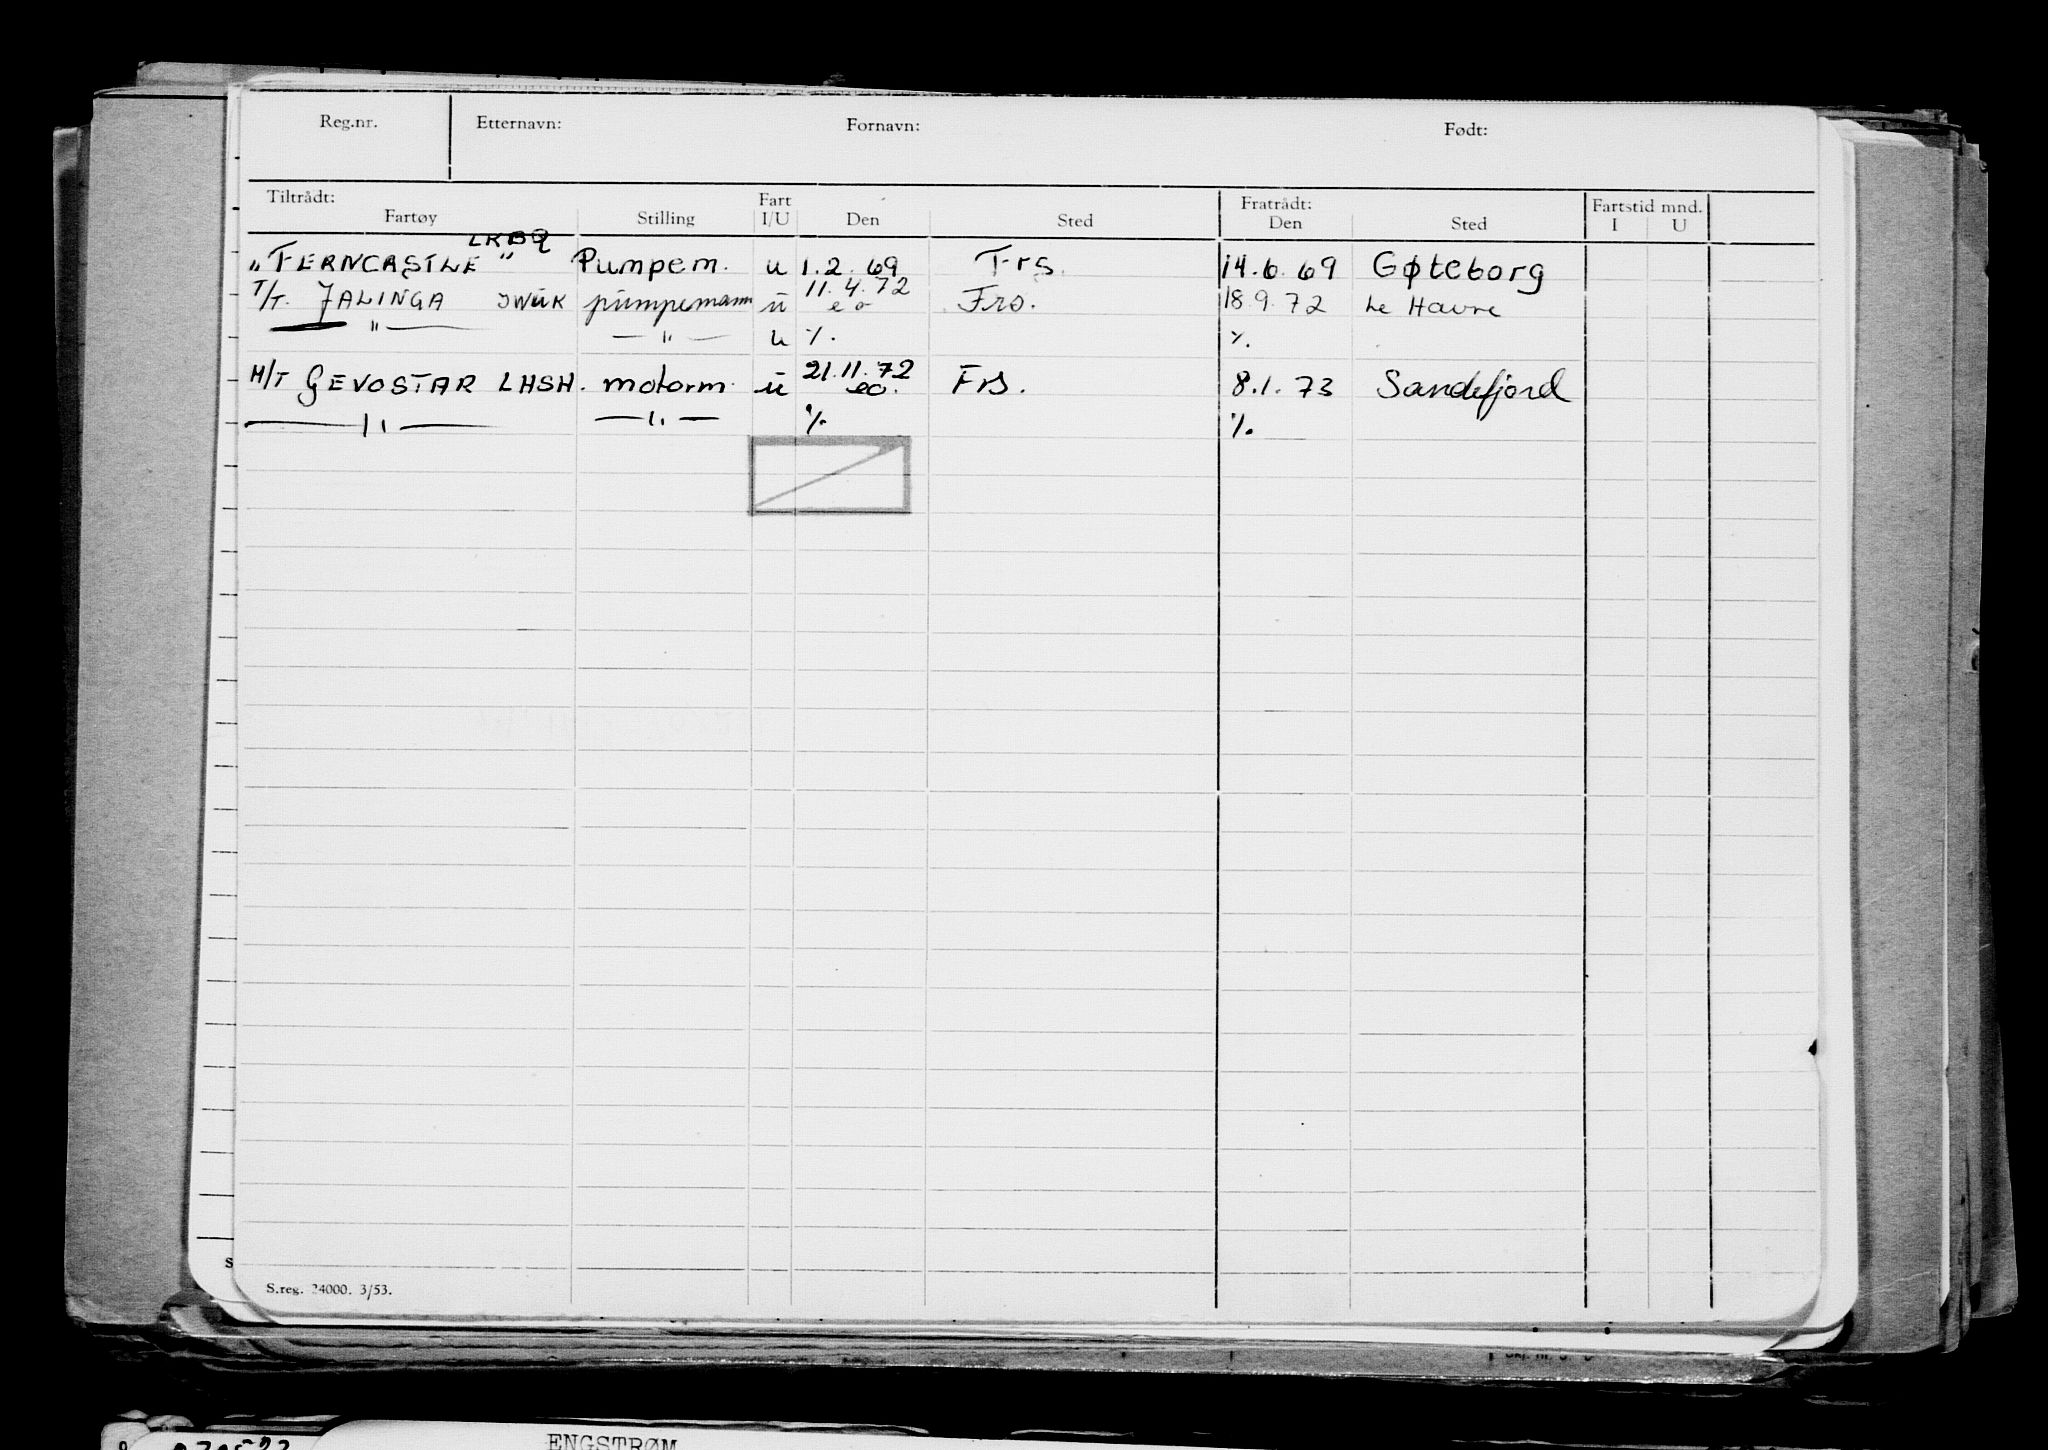 Reg.nr. Etternavn: Fornavn: Født:
Tiltrådt: Fart Fratrådt: Fartstid mnd.
Fartøy Stilling I/U Den Sted Den Sted I U
LKBQ
"FERNCASTLE" Pumpem. u 1.2.69 Frs. 14.6.69 Gøteborg
11.4.72
T/T. JALINGA JWUK pumpemann u eo Frs. 18.9.72 Le Havre
—"— —"— u %. %.
21.11.72
M/T GEVOSTAR LHSH. motorm. u eo. Frs. 8.1.73 Sandefjord
—"— —"— %. %.
S.reg. 24000. 3/53.
ENGSTRØM